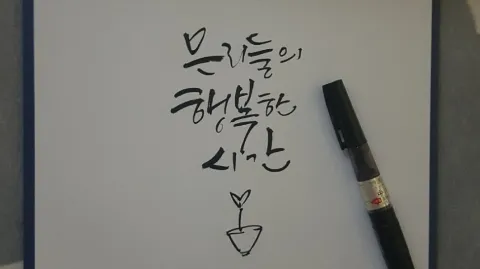 우리들의
행복한
시간